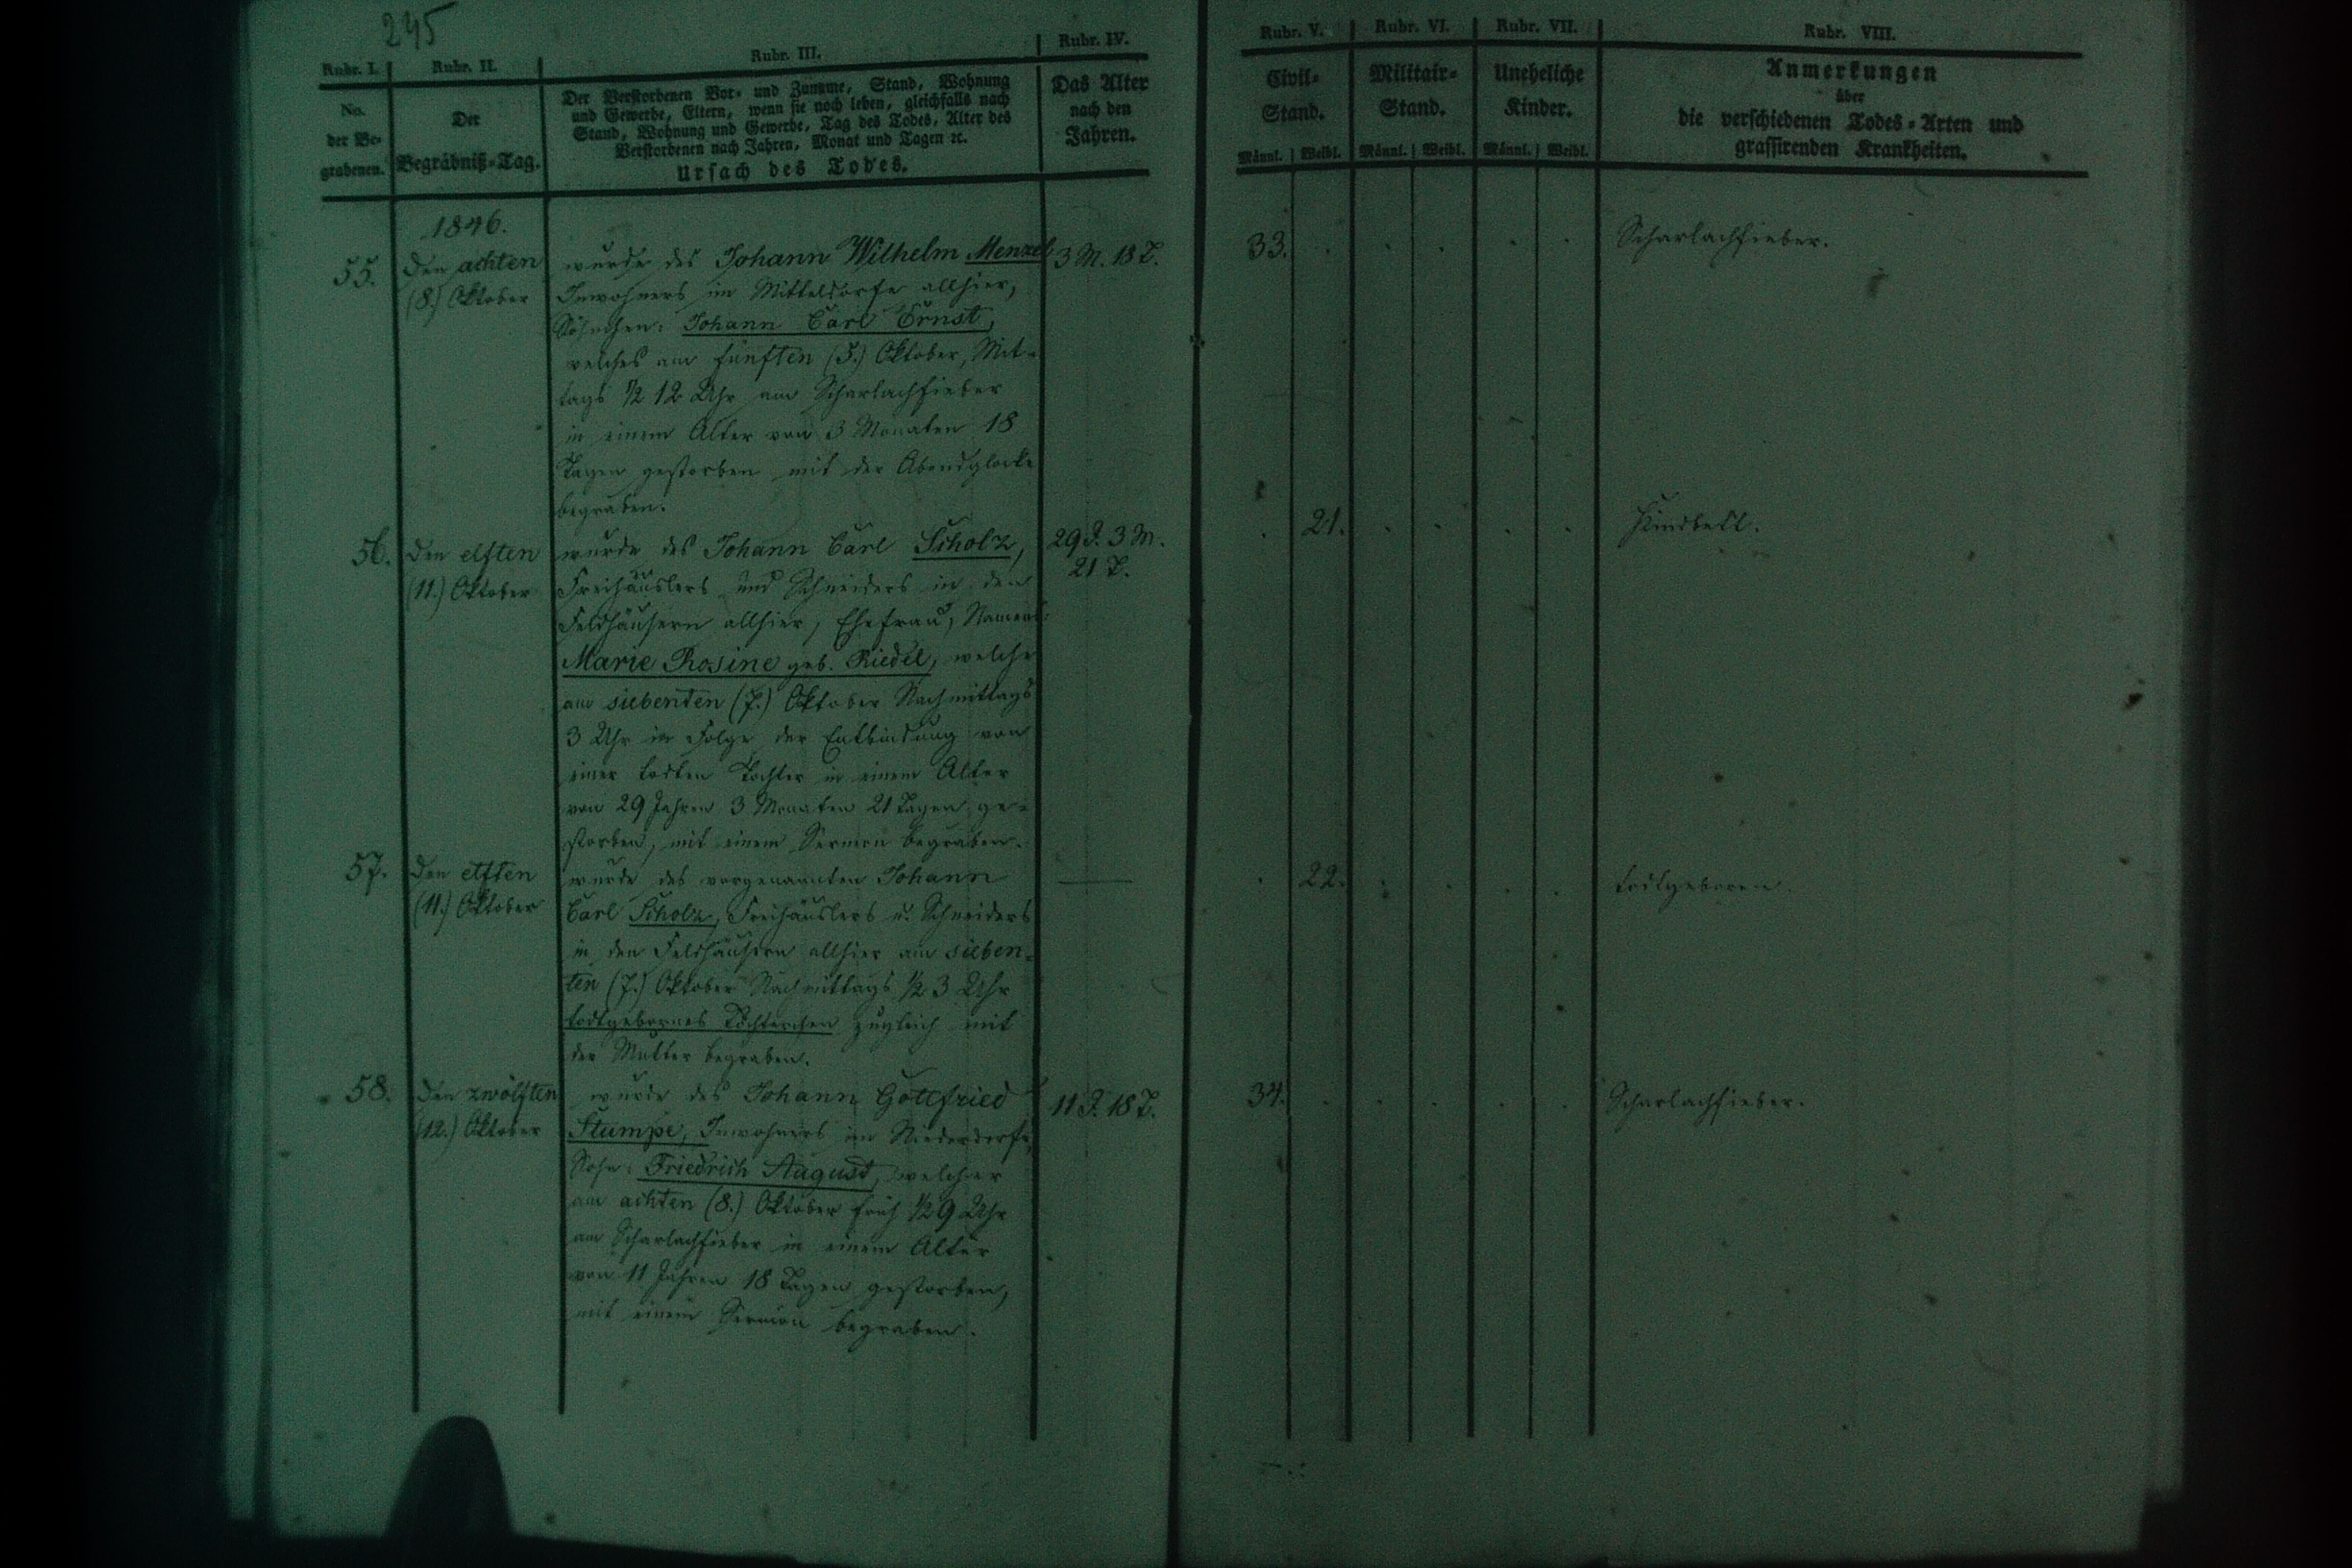 245
Rubr. I. Rubr. II. Rubr. III. Rubr. IV. Rubr. V. Rubr. VI. Rubr. VII. Rubr. VIII.
No.
der Be-
grabenen.
Der
Begräbniß-Tag.
Der Verstorbenen Vor- und Zuname, Stand, Wohnung
und Gewerbe, Eltern, wenn sie noch leben, gleichfalls nach
Stand, Wohnung und Gewerbe, Tag des Todes, Alter des
Verstorbenen nach Jahren, Monat und Tagen ꝛc.
Ursach des Todes.
Das Alter
nach den
Jahren.
Civil-
Stand.
Männl. Weibl.
Militair-
Stand.
Männl. Weibl.
Uneheliche
Kinder.
Männl. Weibl.
Anmerkungen
über
die verschiedenen Todes-Arten und
grassirenden Krankheiten.
1846.
55.
Den achten
(8.) Oktober
wurde des Johann Wilhelm Menzel
Inwohners im Mitteldorfe allhier,
Söhnchen: Johann Carl Ernst,
welches am fünften (5.) Oktober, Mit-
tags ½ 12 Uhr am Scharlachfieber
in einem Alter von 3 Monaten 18
Tagen gestorben mit der Abendglocke
begraben.
3 M. 18 T.
33.
Scharlachfieber.
56.
Den elften
(11.) Oktober
wurde des Johann Carl Scholz,
Freihäuslers und Schneiders in den
Feldhäusern allhier, Ehefrau, Namens:
Marie Rosine geb. Riedel, welche
am siebenten (7.) Oktober Nachmittags
3 Uhr in Folge der Entbindung von
einer todten Tochter in einem Alter
von 29 Jahren 3 Monaten 21 Tagen ge-
storben, mit einem Sermon begraben.
29 J. 3 M.
21 T.
21.
Kindbett.
57.
Den elften
(11.) Oktober
wurde des vorgenannten Johann
Carl Scholz, Freihäuslers u. Schneiders
in den Feldhäusern allhier am sieben-
ten (7.) Oktober Nachmittags ½ 3 Uhr
todtgebornes Töchterchen zugleich mit
der Mutter begraben.
22.
todtgeboren.
58.
Den zwölften
(12.) Oktober
wurde des Johann Gottfried
Stumpe, Inwohners im Niederdorfe,
Sohn: Friedrich August, welcher
am achten (8.) Oktober früh ½ 9 Uhr
am Scharlachfieber in einem Alter
von 11 Jahren 18 Tagen gestorben,
mit einem Sermon begraben.
11 J. 18 T.
34.
Scharlachfieber.